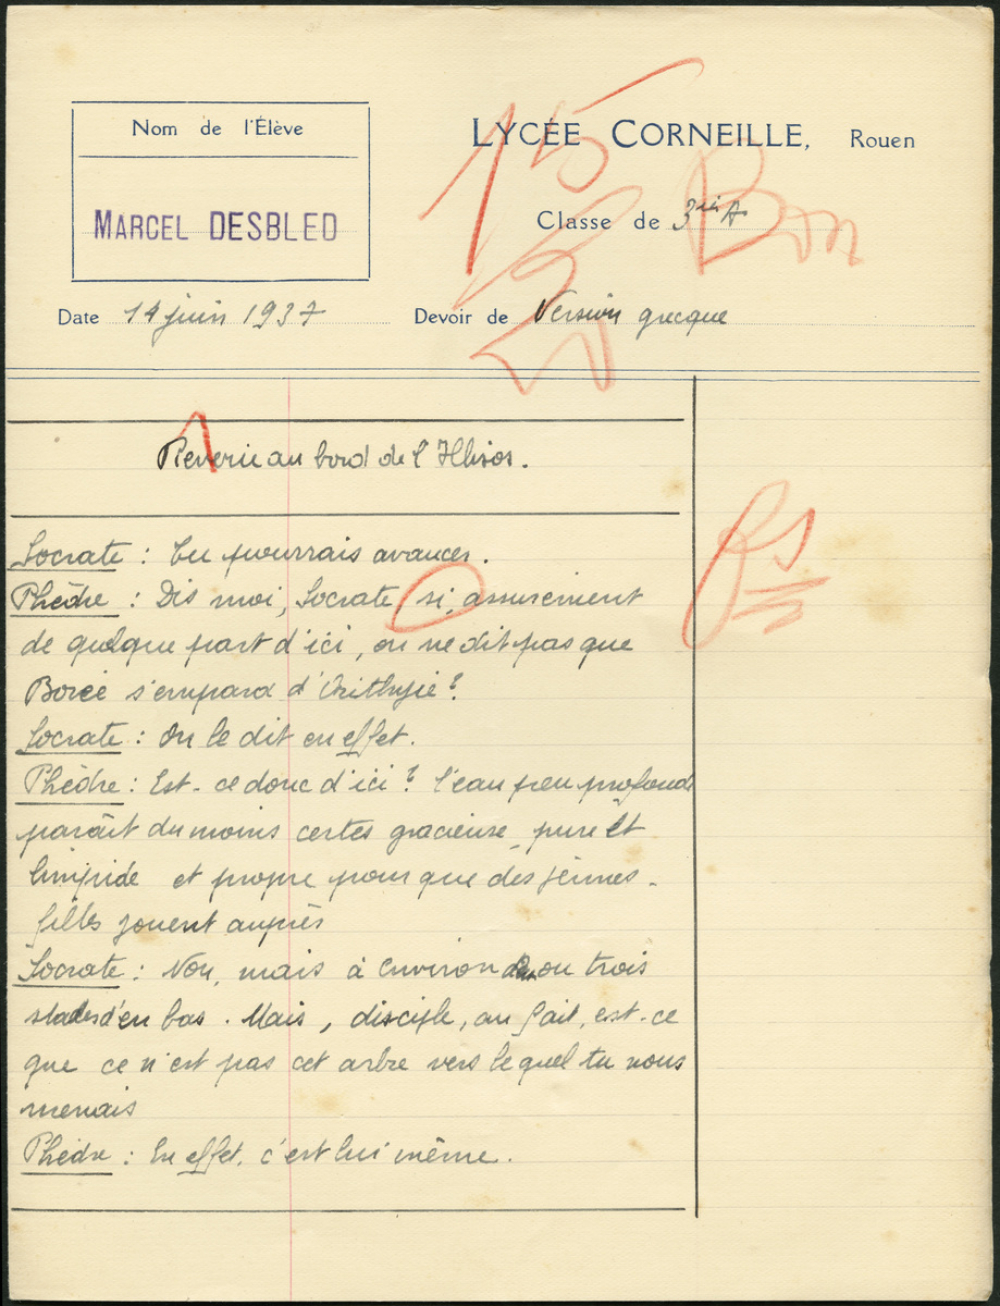 Nom de l'Élève
LYCÉE CORNEILLE, Rouen
MARCEL DESBLED
Classe de 3ième A
15
Bon
Date 14 juin 1937
Devoir de Version grecque
Reverie au bord de l'Illisos.
Socrate : Tu pourrais avancer.
Phèdre : Dis moi, Socrate, si, assurément
de quelque part d'ici, on ne dit pas que
Borée s'empara d'Orithyie ?
Socrate : On le dit en effet.
Phèdre : Est-ce donc d'ici ? l'eau peu profonde
paraît du moins certes gracieuse, pure et
limpide et propre pour que des jeunes-
filles jouent auprès
Socrate : Non, mais à environ deux ou trois
stades d'en bas. Mais, disciple, au fait, est-ce
que ce n'est pas cet arbre vers lequel tu nous
menais
Phèdre : En effet, c'est lui même.